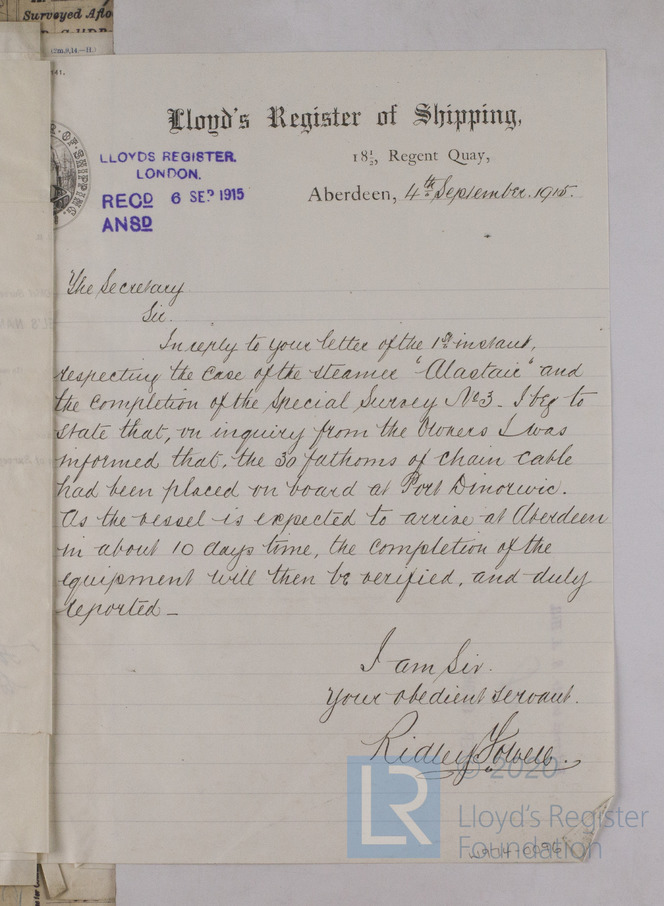 Surveyed Aflo
(2m,9,14.—H.)
241.
Lloyd's Register of Shipping,
18½, Regent Quay,
Aberdeen, 4th September. 1915.
OF SHIPPING
LLOYDS REGISTER.
LONDON.
RECD 6 SEP 1915
ANSD
The Secretary
Sir.
In reply to your letter of the 1st instant,
respecting the case of the steamer "Alastair" and
the completion of the Special Survey No 3 - I beg to
state that, on inquiry from the Owners I was
informed that, the 30 fathoms of chain cable
had been placed on board at Port Dinorwic.
As the vessel is expected to arrive at Aberdeen
in about 10 days time, the completion of the
equipment will then be verified, and duly
reported -
I am Sir.
Your obedient servant.
Ridley
LR
© 2020
Lloyd's Register
Foundation